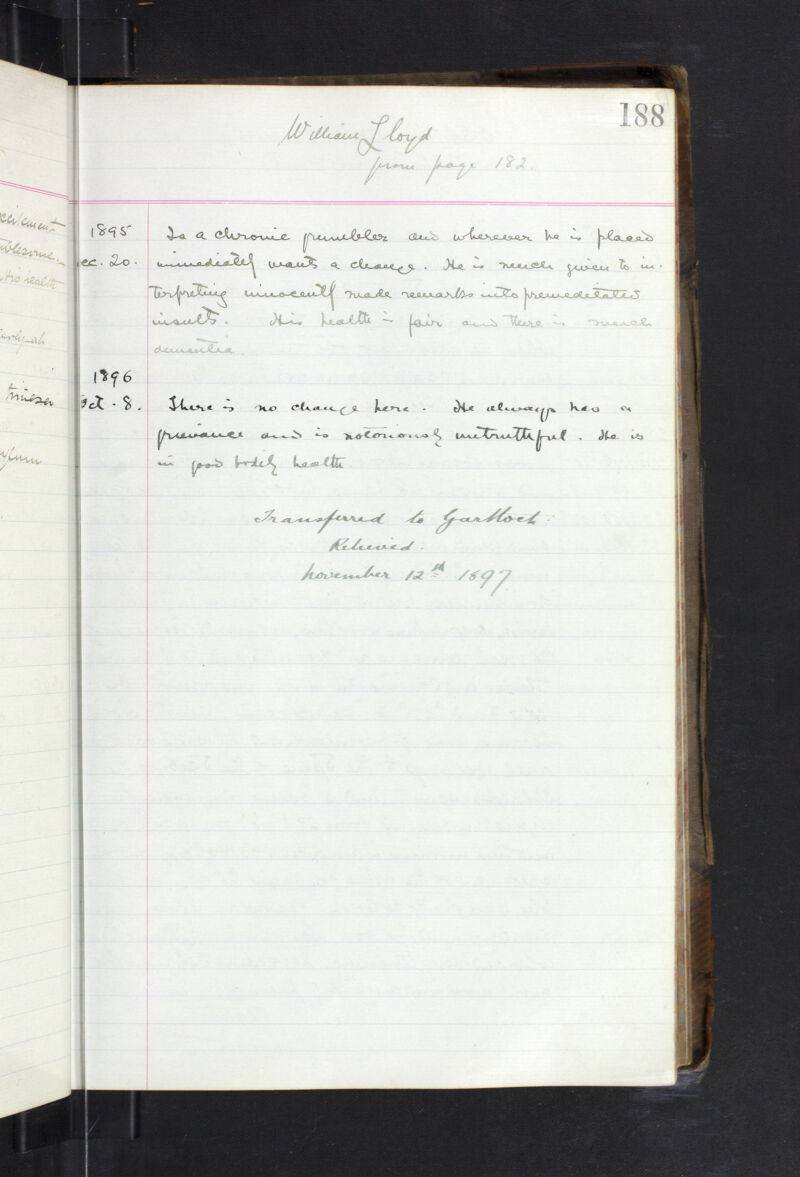 188
William Lloyd
from page 182.
1895
ec. 20.
Is a chronic grumbler and wherever he is placed
immediately wants a change. He is much given to in-
terpreting innocently made remarks into premeditated
insults. His health is fair and there is much
dementia.
1896
Oct. 8.
There is no change here. He always has a
grievance and is notoriously untruthful. He is
in good bodily health
Transferred to Gartloch.
Relieved.
November 12th 1897
xcitement
ublesome
His health